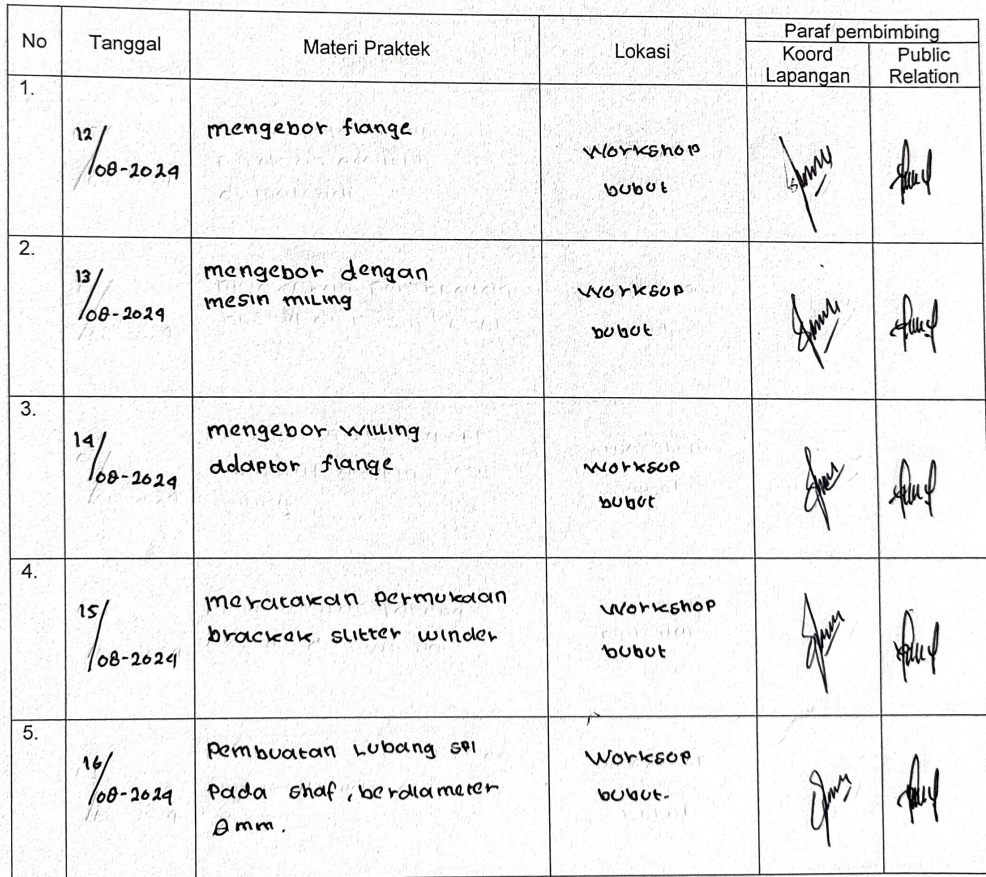 No Tanggal Materi Praktek Lokasi Paraf pembimbing
Koord Lapangan Public Relation
1.
12/08-2024
mengebor flange
Workshop
bubut
2.
13/08-2024
mengebor dengan
mesin miling
Worksop
bubut
3.
14/08-2024
mengebor willing
adaptor flange
Worksop
bubut
4.
15/08-2024
meratakan permukaan
brackek slitter winder
Workshop
bubut
5.
16/08-2024
Pembuatan Lubang spi
Pada shaf, berdiameter
8 mm.
Worksop
bubut.